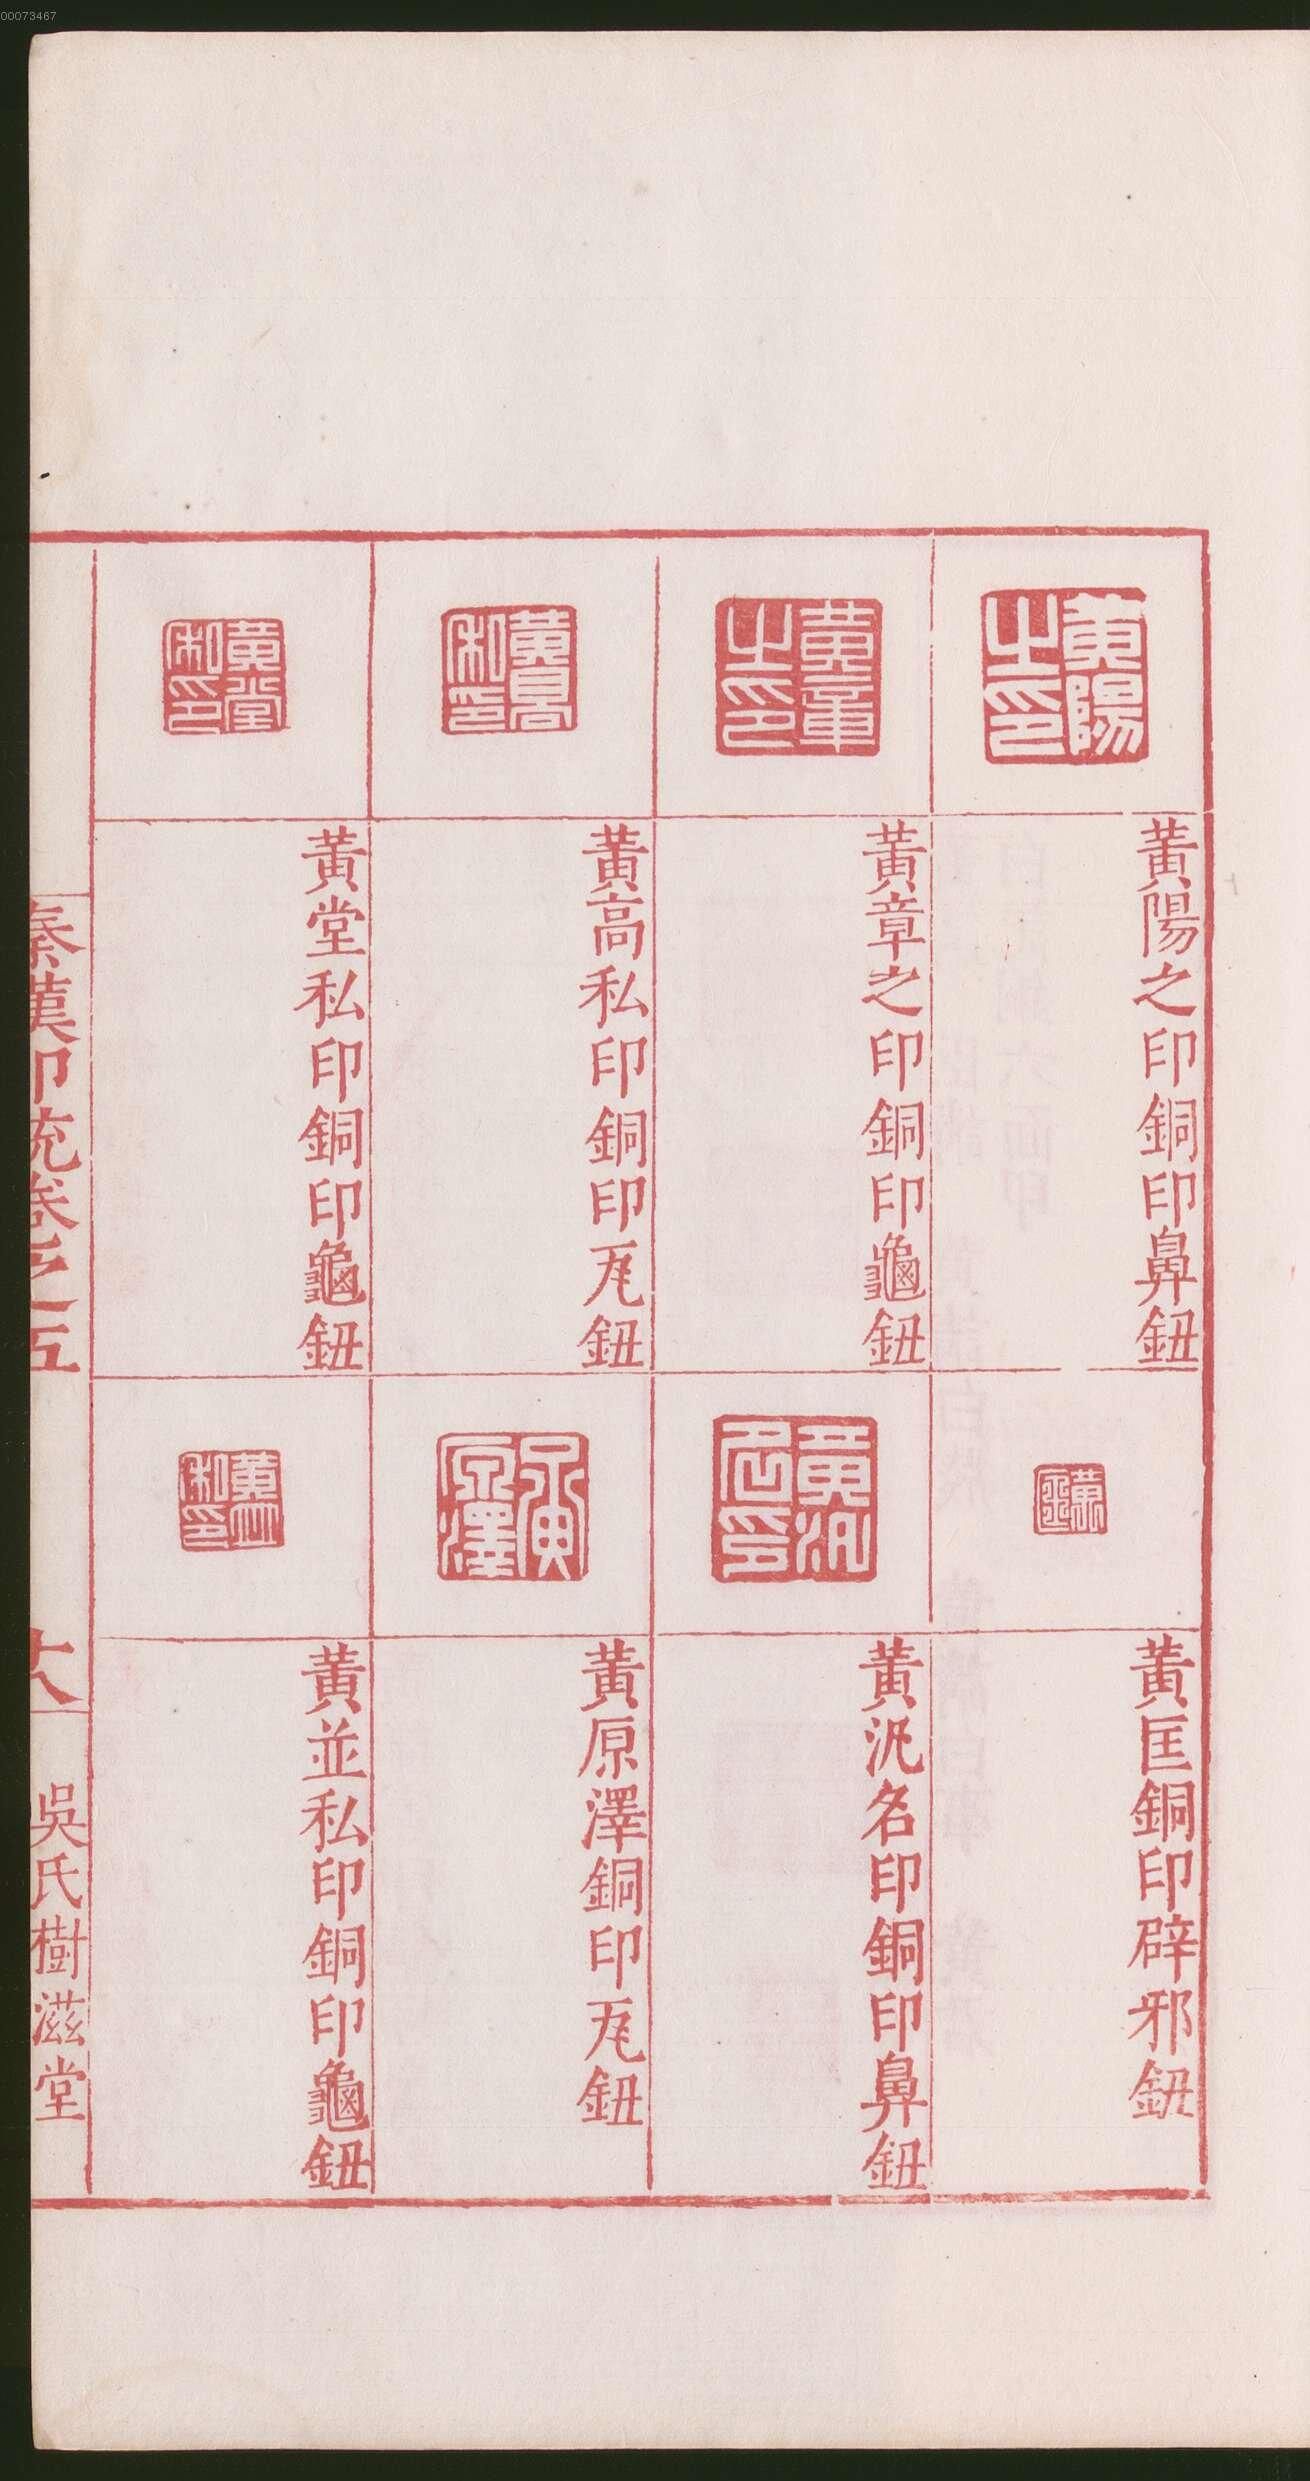 00073467
黃陽之印
黃陽之印銅印鼻鈕
黃章之印
黃章之印銅印龜鈕
黃高私印
黃高私印銅印瓦鈕
黃堂私印
黃堂私印銅印龜鈕
黃匡
黃匡銅印辟邪鈕
黃汎名印
黃汎名印銅印鼻鈕
黃原澤
黃原澤銅印瓦鈕
黃並私印
黃並私印銅印龜鈕
秦漢印統卷之五
吳氏樹滋堂